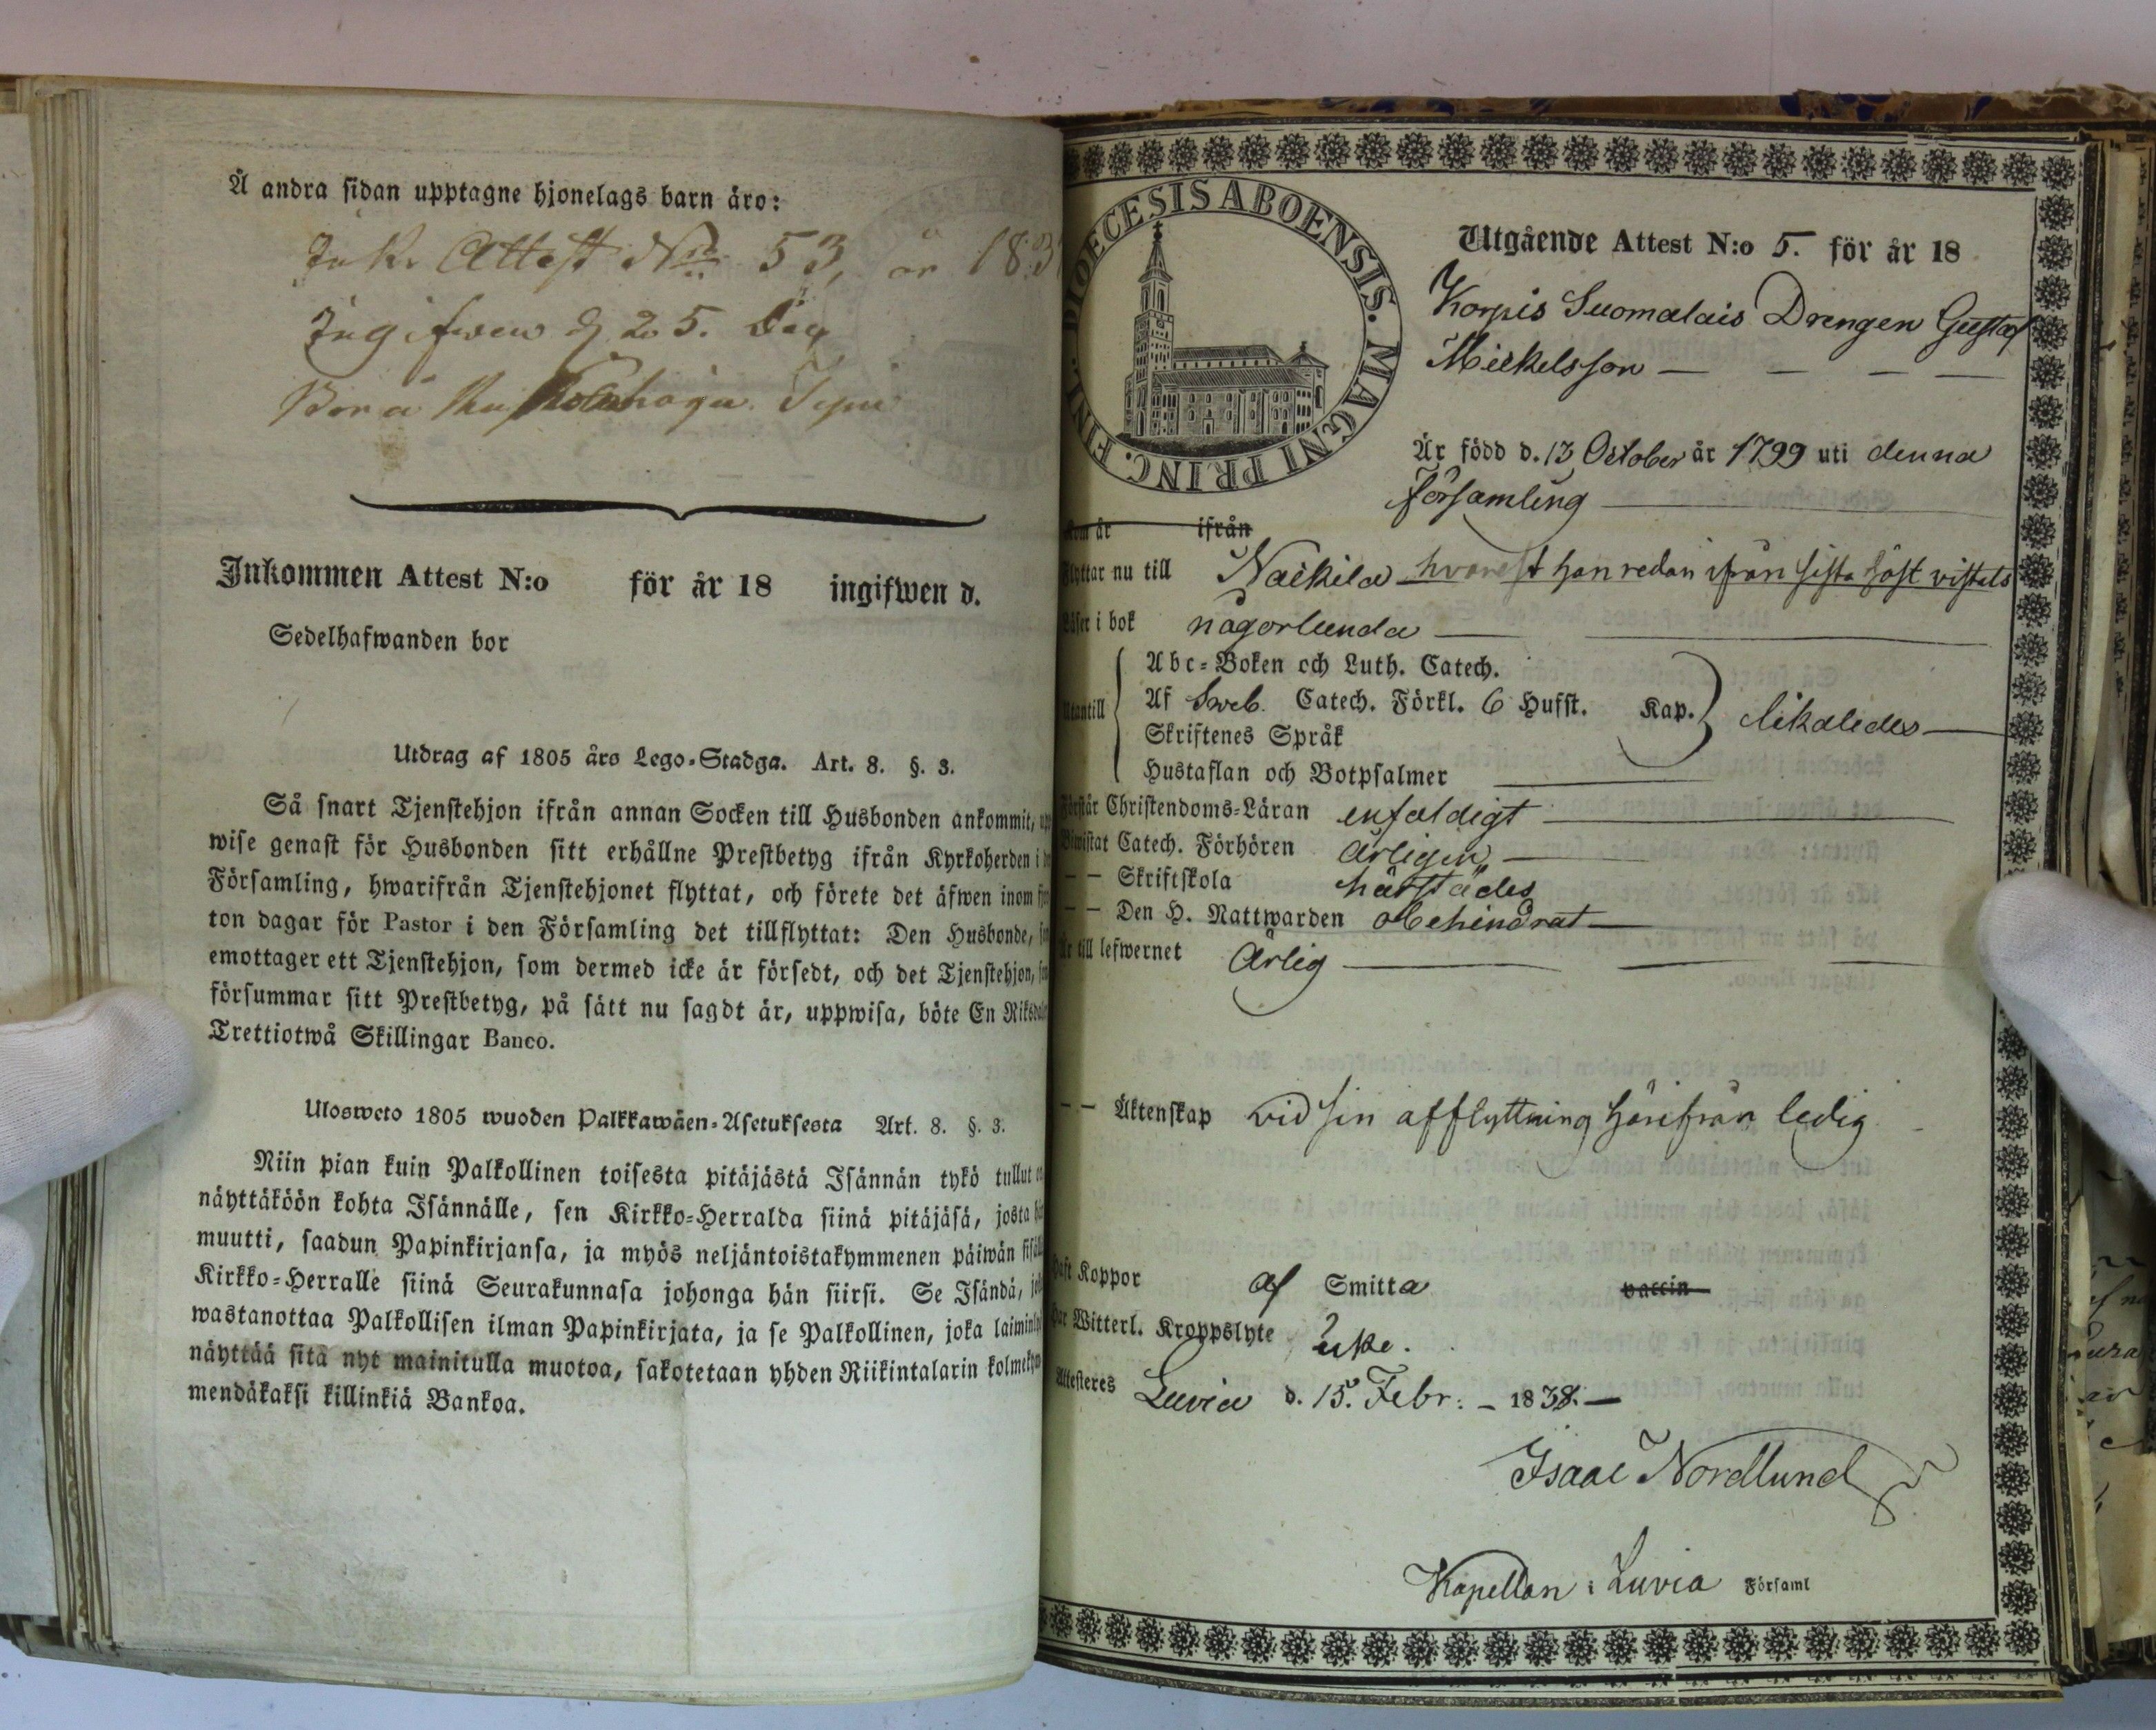 Å andra sidan upptagne hjonelags barn äro:
Ink. Attest No 53, år 183
Ingifwen d 25.
Bor å
Inkommen Attest N:o för år 18 ingifwen d.
Sedelhafwanden bor
Utdrag af 1805 års Lego-Stadga. Art. 8. §. 3.
Så snart Tjenstehjon ifrån annan Socken till Husbonden ankommit,
wise genast för Husbonden sitt erhållne Prestbetyg ifrån Kyrkoherden i
Församling, hwarifrån Tjenstehjonet flyttat, och förete det äfwen inom
ton dagar för Pastor i den Församling det tillflyttat: Den Husbonde,
emottager ett Tjenstehjon, som dermed icke är försedt, och det Tjenstehjon,
försummar sitt Prestbetyg, på sätt nu sagdt är, uppwisa, böte En Riksdaler
Trettiotwå Skillingar Banco.
Ulosweto 1805 wuoden Palkkawäen-Asetuksesta Art. 8. §. 3.
Niin pian kuin Palkollinen toisesta pitäjästä Isännän tykö tullut
näyttäköön kohta Isännälle, sen Kirkko-Herralda siinä pitäjäsä, josta
muutti, saadun Papinkirjansa, ja myös neljäntoistakymmenen päiwän
Kirkko-Herralle siinä Seurakunnasa johonga hän siirsi. Se Isändä,
wastanottaa Palkollisen ilman Papinkirjata, ja se Palkollinen, joka
näyttää sitä nyt mainitulla muotoa, sakotetaan yhden Riikintalarin
mendäkaksi killinkiä Bankoa.
DIOECESIS ABOENSIS. MAGNI PRINC. FINL.
Utgående Attest N:o 5. för år 18
Korpis Suomalais Drengen Gustaf
Mickelsson
Är född d. 13 October år 1799 uti denna
församling
Kom år ifrån
Flyttar nu till Nackila hvarest han redan ifrån sista höst vistats
Läser i bok någorlunda
Utantill
Abc-Boken och Luth. Catech.
Af Sveb. Catech. Förkl. 6 Hufst. Kap. likaledes
Skriftenes Språk
Hustaflan och Botpsalmer
Förstår Christendoms-Läran enfaldigt
Biwistat Catech. Förhören årligen
— — Skriftskola härstädes
— — Den H. Nattwarden obehindrat
Är till lefwernet Ärlig
— — Äktenskap vid sin afflyttning härifrån ledig
Haft Koppor af Smitta vaccin
Har Witterl. Kroppslyte icke.
Attesteres Luvia d. 15. Febr: 1838.
Isaac Nordlund
Kapellan i Luvia Församl